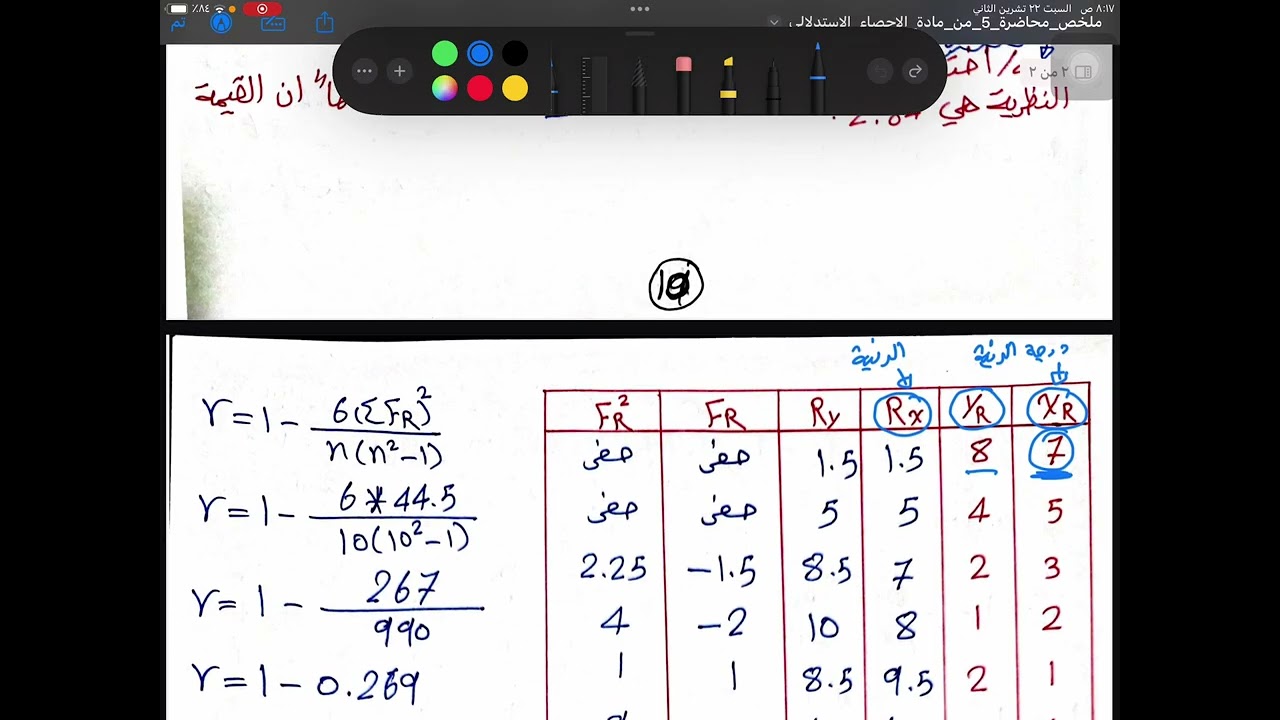 ٨:١٧ ص السبت ٢٢ تشرين الثاني
٨٤٪
ملخص_محاضرة_5_من_مادة_الاحصاء_الاستدلالي
تم
٢ من ٢
ان القيمة
النظرية هي
10
درجة الرتبة
الرتبة
XR YR Rx Ry FR FR²
7 8 1.5 1.5 صفر صفر
5 4 5 5 صفر صفر
3 2 7 8.5 -1.5 2.25
2 1 8 10 -2 4
1 2 9.5 8.5 1 1
r = 1 - 6(ΣFR)² / n(n²-1)
r = 1 - 6*44.5 / 10(10²-1)
r = 1 - 267 / 990
r = 1 - 0.269